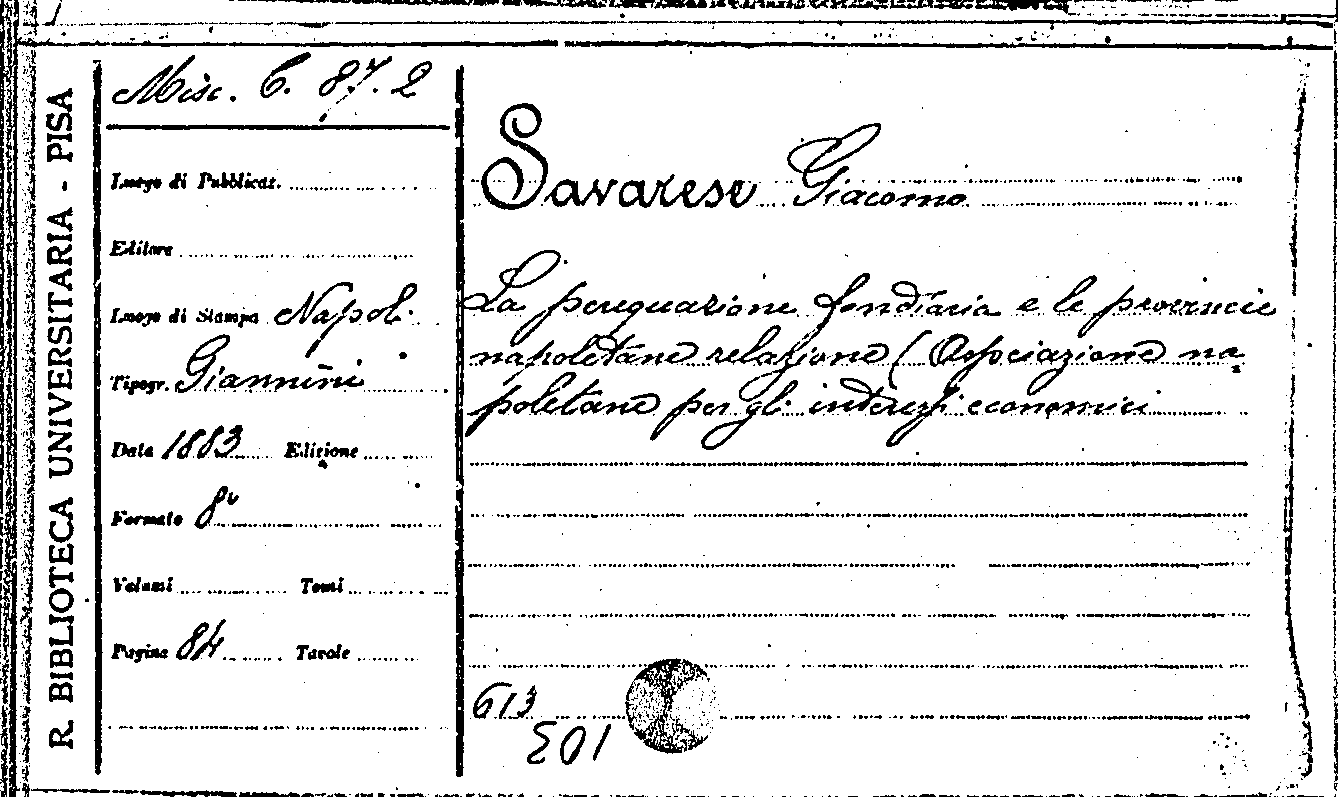 R. BIBLIOTECA UNIVERSITARIA - PISA
Misc. C. 87. 2
Luogo di Pubblicaz.
Editore
Luogo di Stampa Napoli
Tipogr. Giannini
Data 1883 Edizione
Formato 8°
Volumi Tomi
Pagine 84 Tavole
Savarese Giacomo
La perequazione fondiaria e le provincie
napoletane relazione (Associazione na
poletana per gli interessi economici
613
101